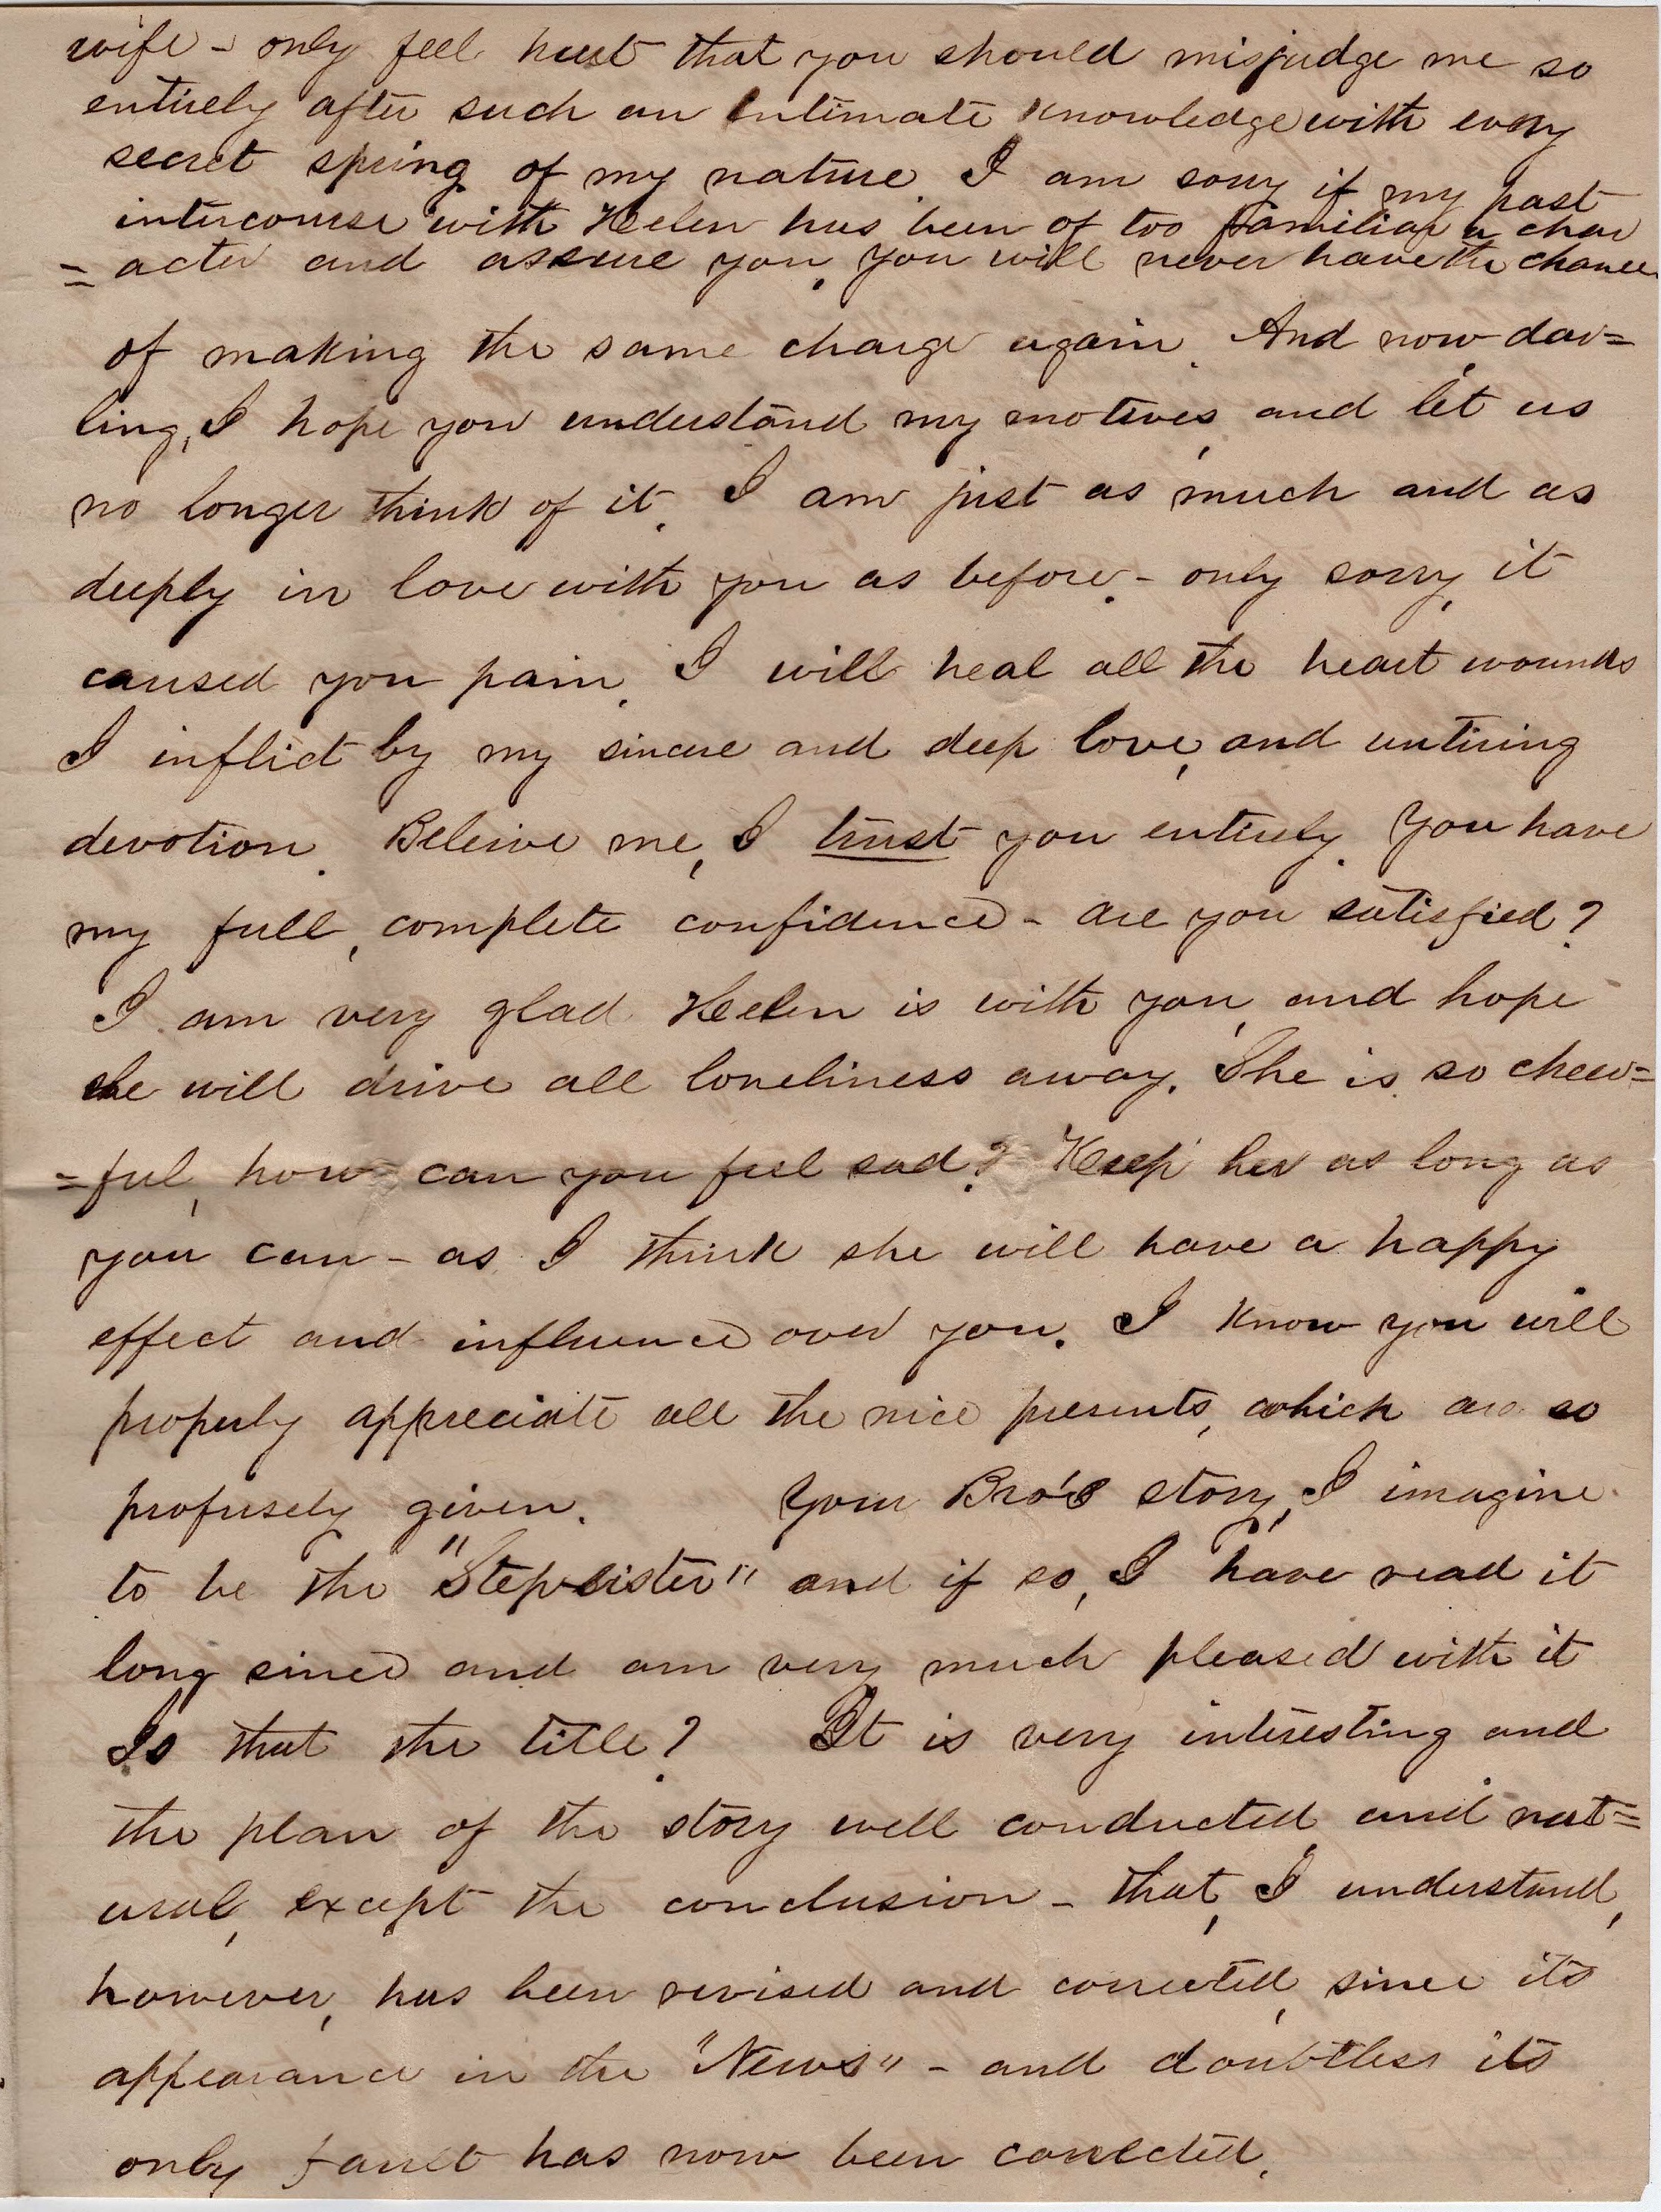 wife - only feel hurt that you should misjudge me so
entirely after such an intimate knowledge with every
secret spring of my nature. I am sorry if my past
intercourse with Helen has been of too familiar a char
= acter and assure you, you will never have the chance
of making the same charge again. And now, dar=
ling, I hope you understand my motives, and let us
no longer think of it. I am just as much and as
deeply in love with you as before. - only sorry, it
caused you pain. I will heal all the heart wounds
I inflict by my sincere and deep love, and untiring
devotion. Beleive me, I trust you entirely. You have
my full, complete confidence - are you satisfied?
I am very glad Helen is with you, and hope
she will drive all loneliness away. She is so cheer=
=ful, how can you feel sad? Keep her as long as
you can - as I think she will have a happy
effect and influence over you. I know you will
properly appreciate all the nice presents, which are so
profusely given. Your Bro's story, I imagine
to be the "Stepsister" and if so, I have read it
long since and am very much pleased with it
Is that the title? It is very interesting and
the plan of the story well conducted, and nat=
ural, except the conclusion - that, I understand,
however, has been revised and corrected, since its
appearance in the "News" - and doubtless its
only fault has now been corrected.